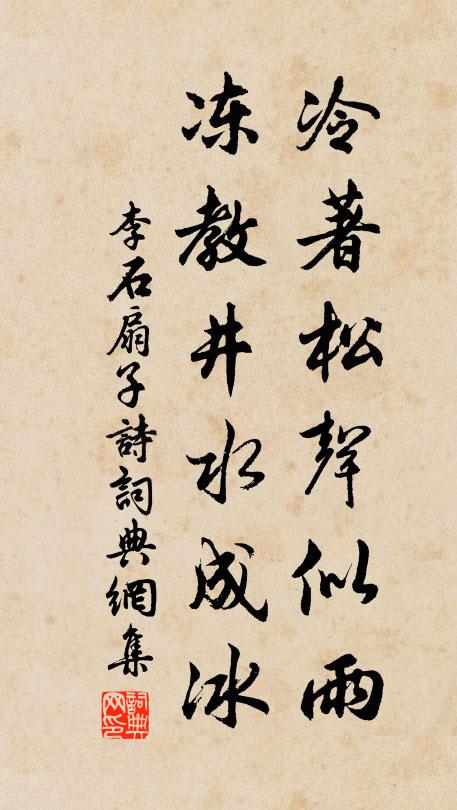 冷著松聲似雨
凍教井水成冰
李石扇子詩詞典網集
詞典網印